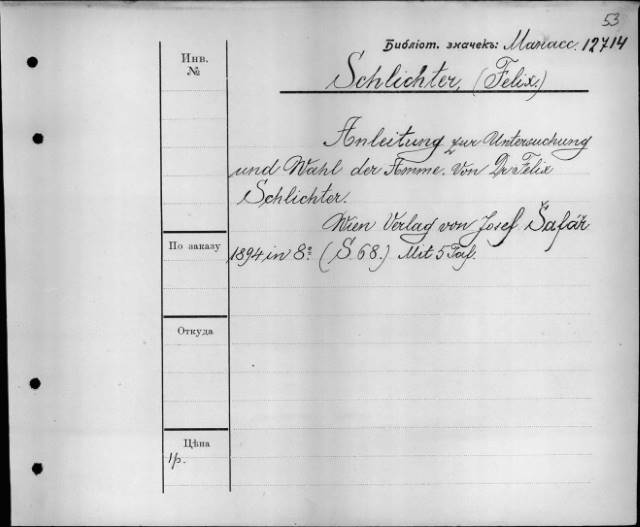 53
Библіот. значекъ: Манасс. 12714
Инв.
№
Schlichter, (Felix.)
Anleitung zur Untersuchung
und Wahl der Amme. Von Dr Felix
Schlichter.
Wien Verlag von Josef Šafář
По заказу
1894 in 8º (S. 68.) Mit 5 Taf.
Откуда
Цѣна
1р.